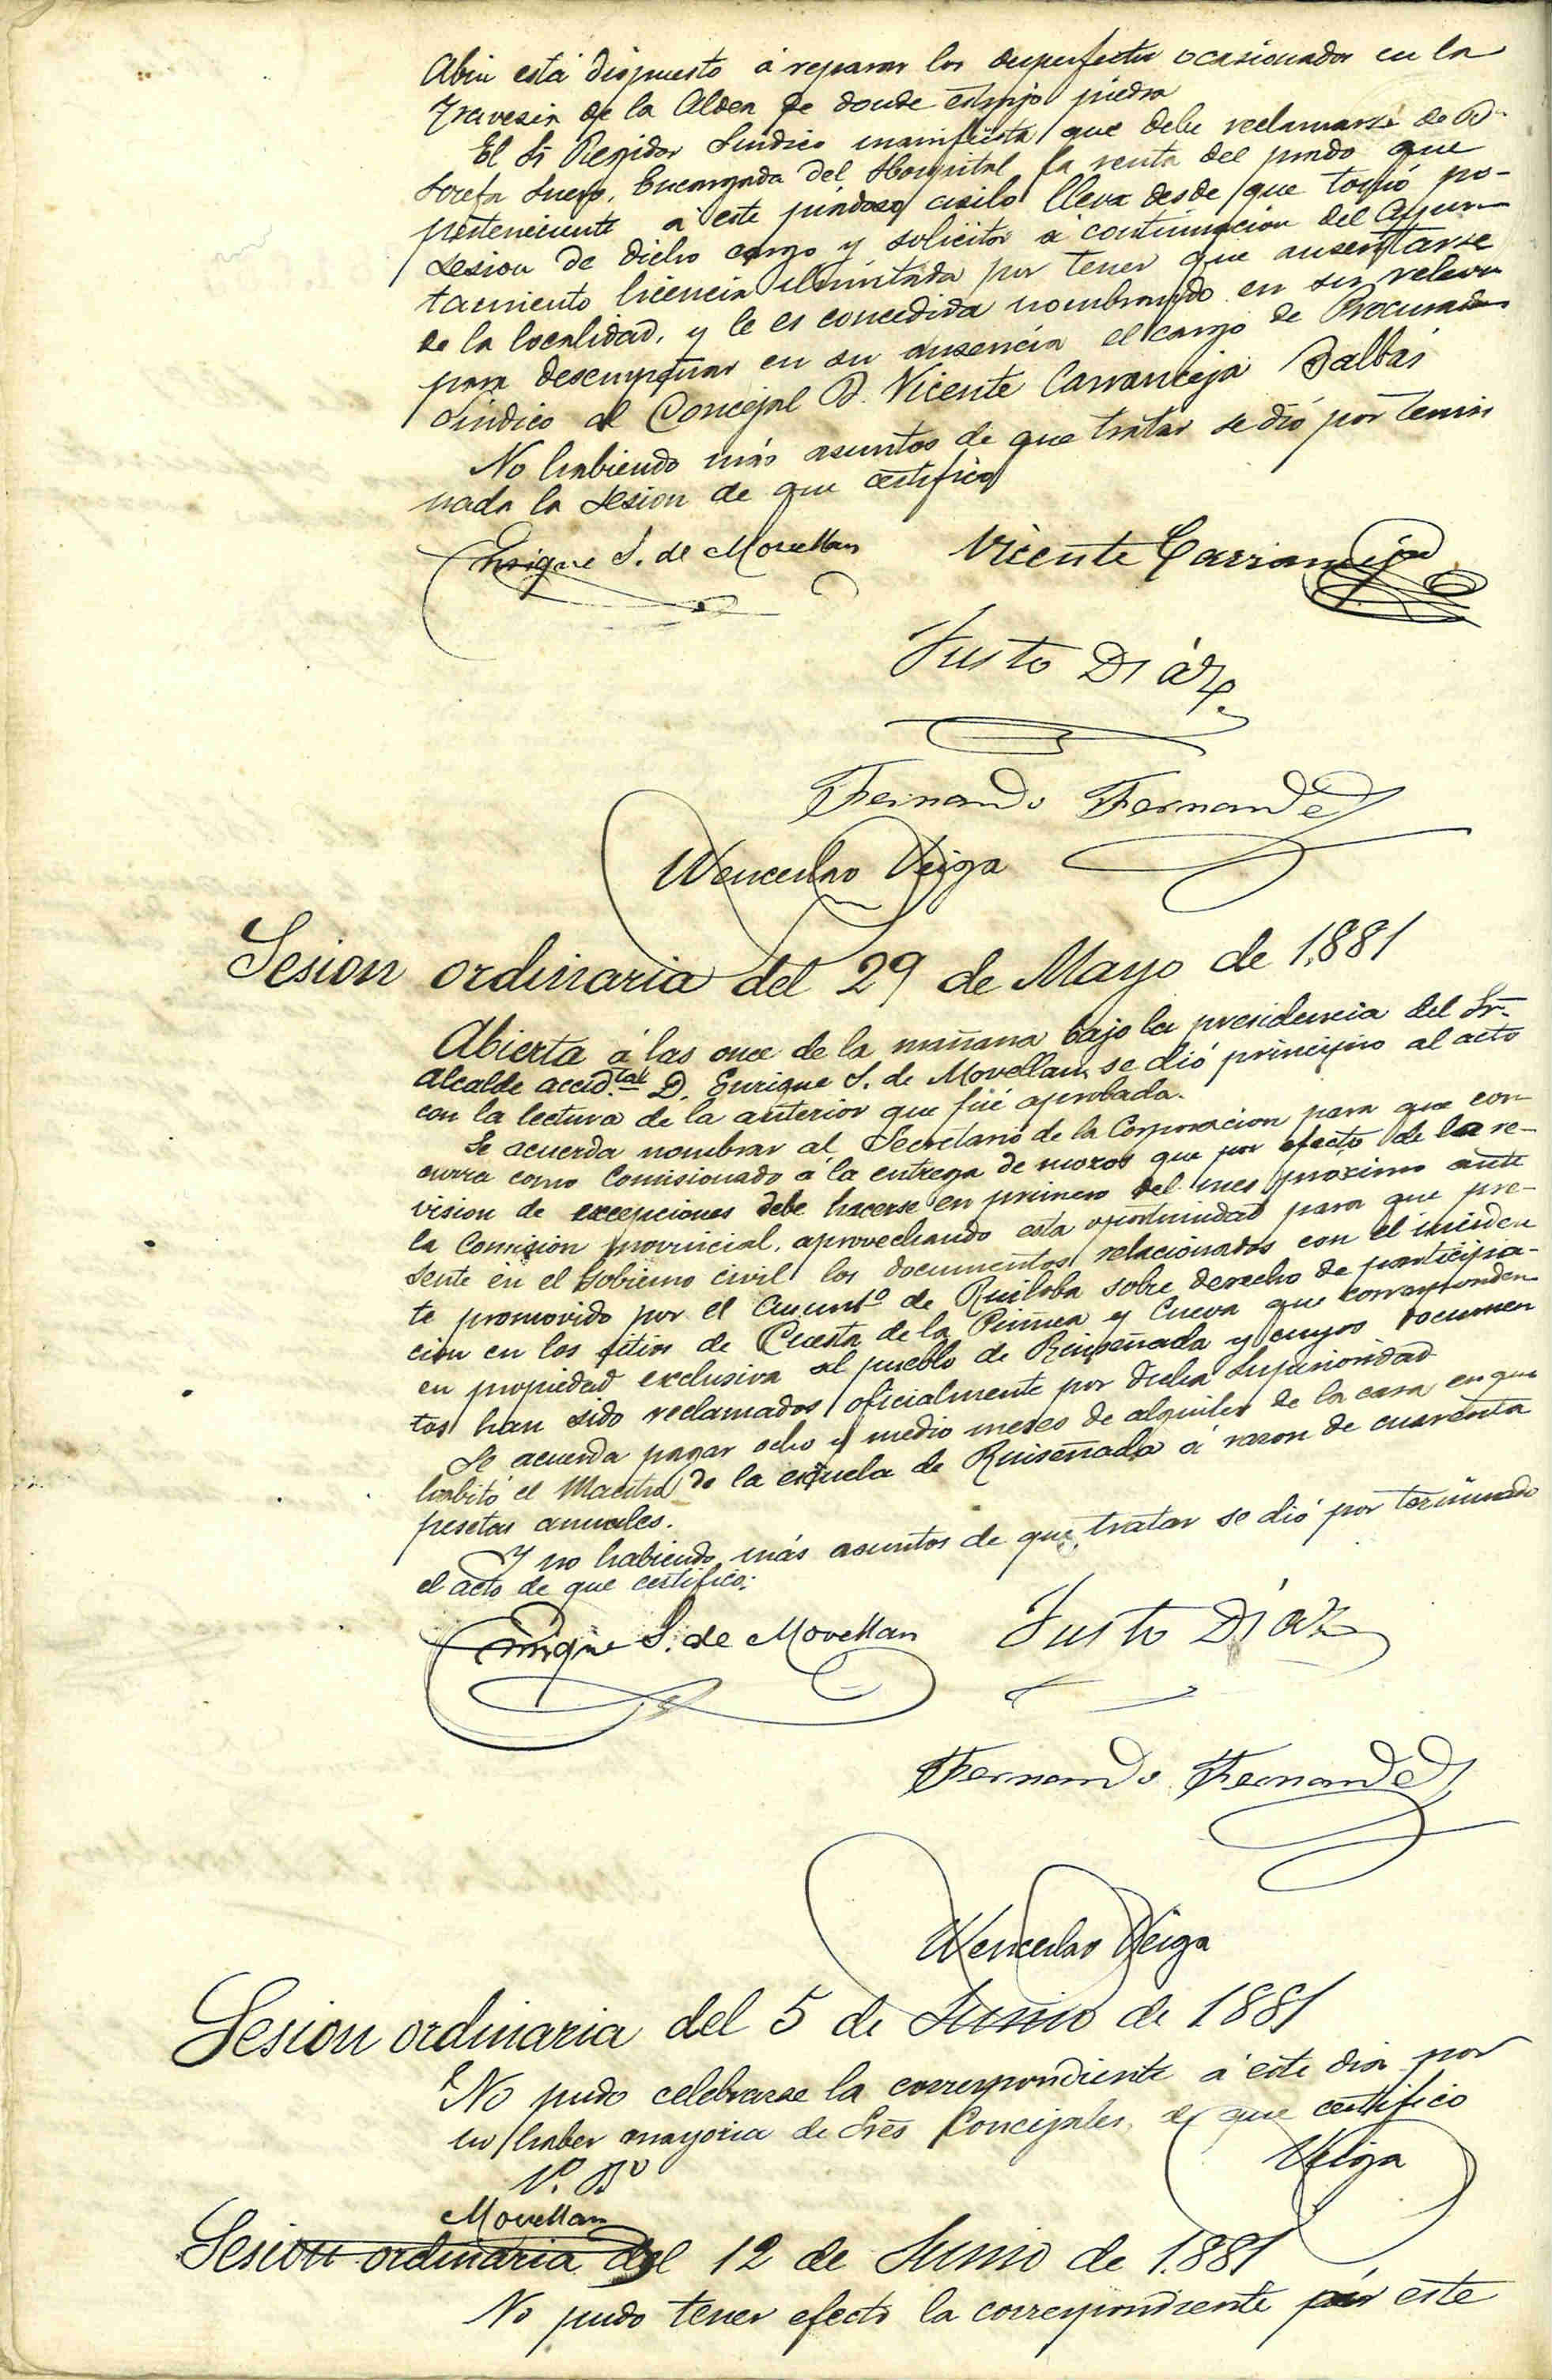 Abin está dispuesto á reparar los desperfectos ocasionados en la
Travesia de la Aldea de donde estrajo piedra
El Sr Regidor Sindico manifiesta que debe reclamarse de Dª
Josefa Suero, Encargada del Hospital la renta del prado que
perteneciente a este piadoso asilo lleva desde que tomó po-
sesion de dicho cargo y solicitó a continuacion del Ayun-
tamiento licencia ilimitada por tener que ausentarse
de la localidad, y le es concedida nombrando en su relevo
para desempeñar en su ausencia el cargo de Procurador
Sindico al Concejal D. Vicente Carranceja Balbás
No habiendo más asuntos de que tratar se dió por termi
nada la sesion de que certifico
Enrique S. de Movellan Vicente Carranceja
Justo Diáz
Fernando Fernandez
Wenceslao Veiga
Sesion ordinaria del 29 de Mayo de 1.881
Abierta á las once de la mañana bajo la presidencia del Sr.
Alcalde accid.tal D. Enrique S. de Movellan, se dió principio al acto
con la lectura de la anterior que fué aprobada.
Se acuerda nombrar al Secretario de la Corporacion para que con
curra como Comisionado á la entrega de mozos que por efecto de la re-
vision de excepciones debe hacerse en primero del mes proximo ante
la Comision provincial, aprovechando esta oportunidad para que pre-
sente en el Gobierno civil los documentos relacionados con el inciden
te promovido por el Ayuntº de Ruiloba sobre derecho de participa-
cion en los sitios de Cuesta de la y Cueva que corresponden
en propiedad exclusiva al pueblo de Ruiseñada y cuyos documen
tos han sido reclamados oficialmente por dicha Superioridad
Se acuerda pagar ocho y medio meses de alquiler de la casa en que
habitó el Maestro de la escuela de Ruiseñada á razon de cuarenta
pesetas anuales.
Y no habiendo más asuntos de que tratar se dió por terminado
el acto de que certifico.
Enrique S. de Movellan Justo Diáz
Fernando Fernandez
Wenceslao Veiga
Sesion ordinaria del 5 de Junio de 1881
No pudo celebrarse la correspondiente á este dia por
no haber mayoria de Sres Concejales, de que certifico
Vº. Bº Veiga
Movellan
Sesion ordinaria del 12 de Junio de 1.881
No pudo tener efecto la correspondiente por este